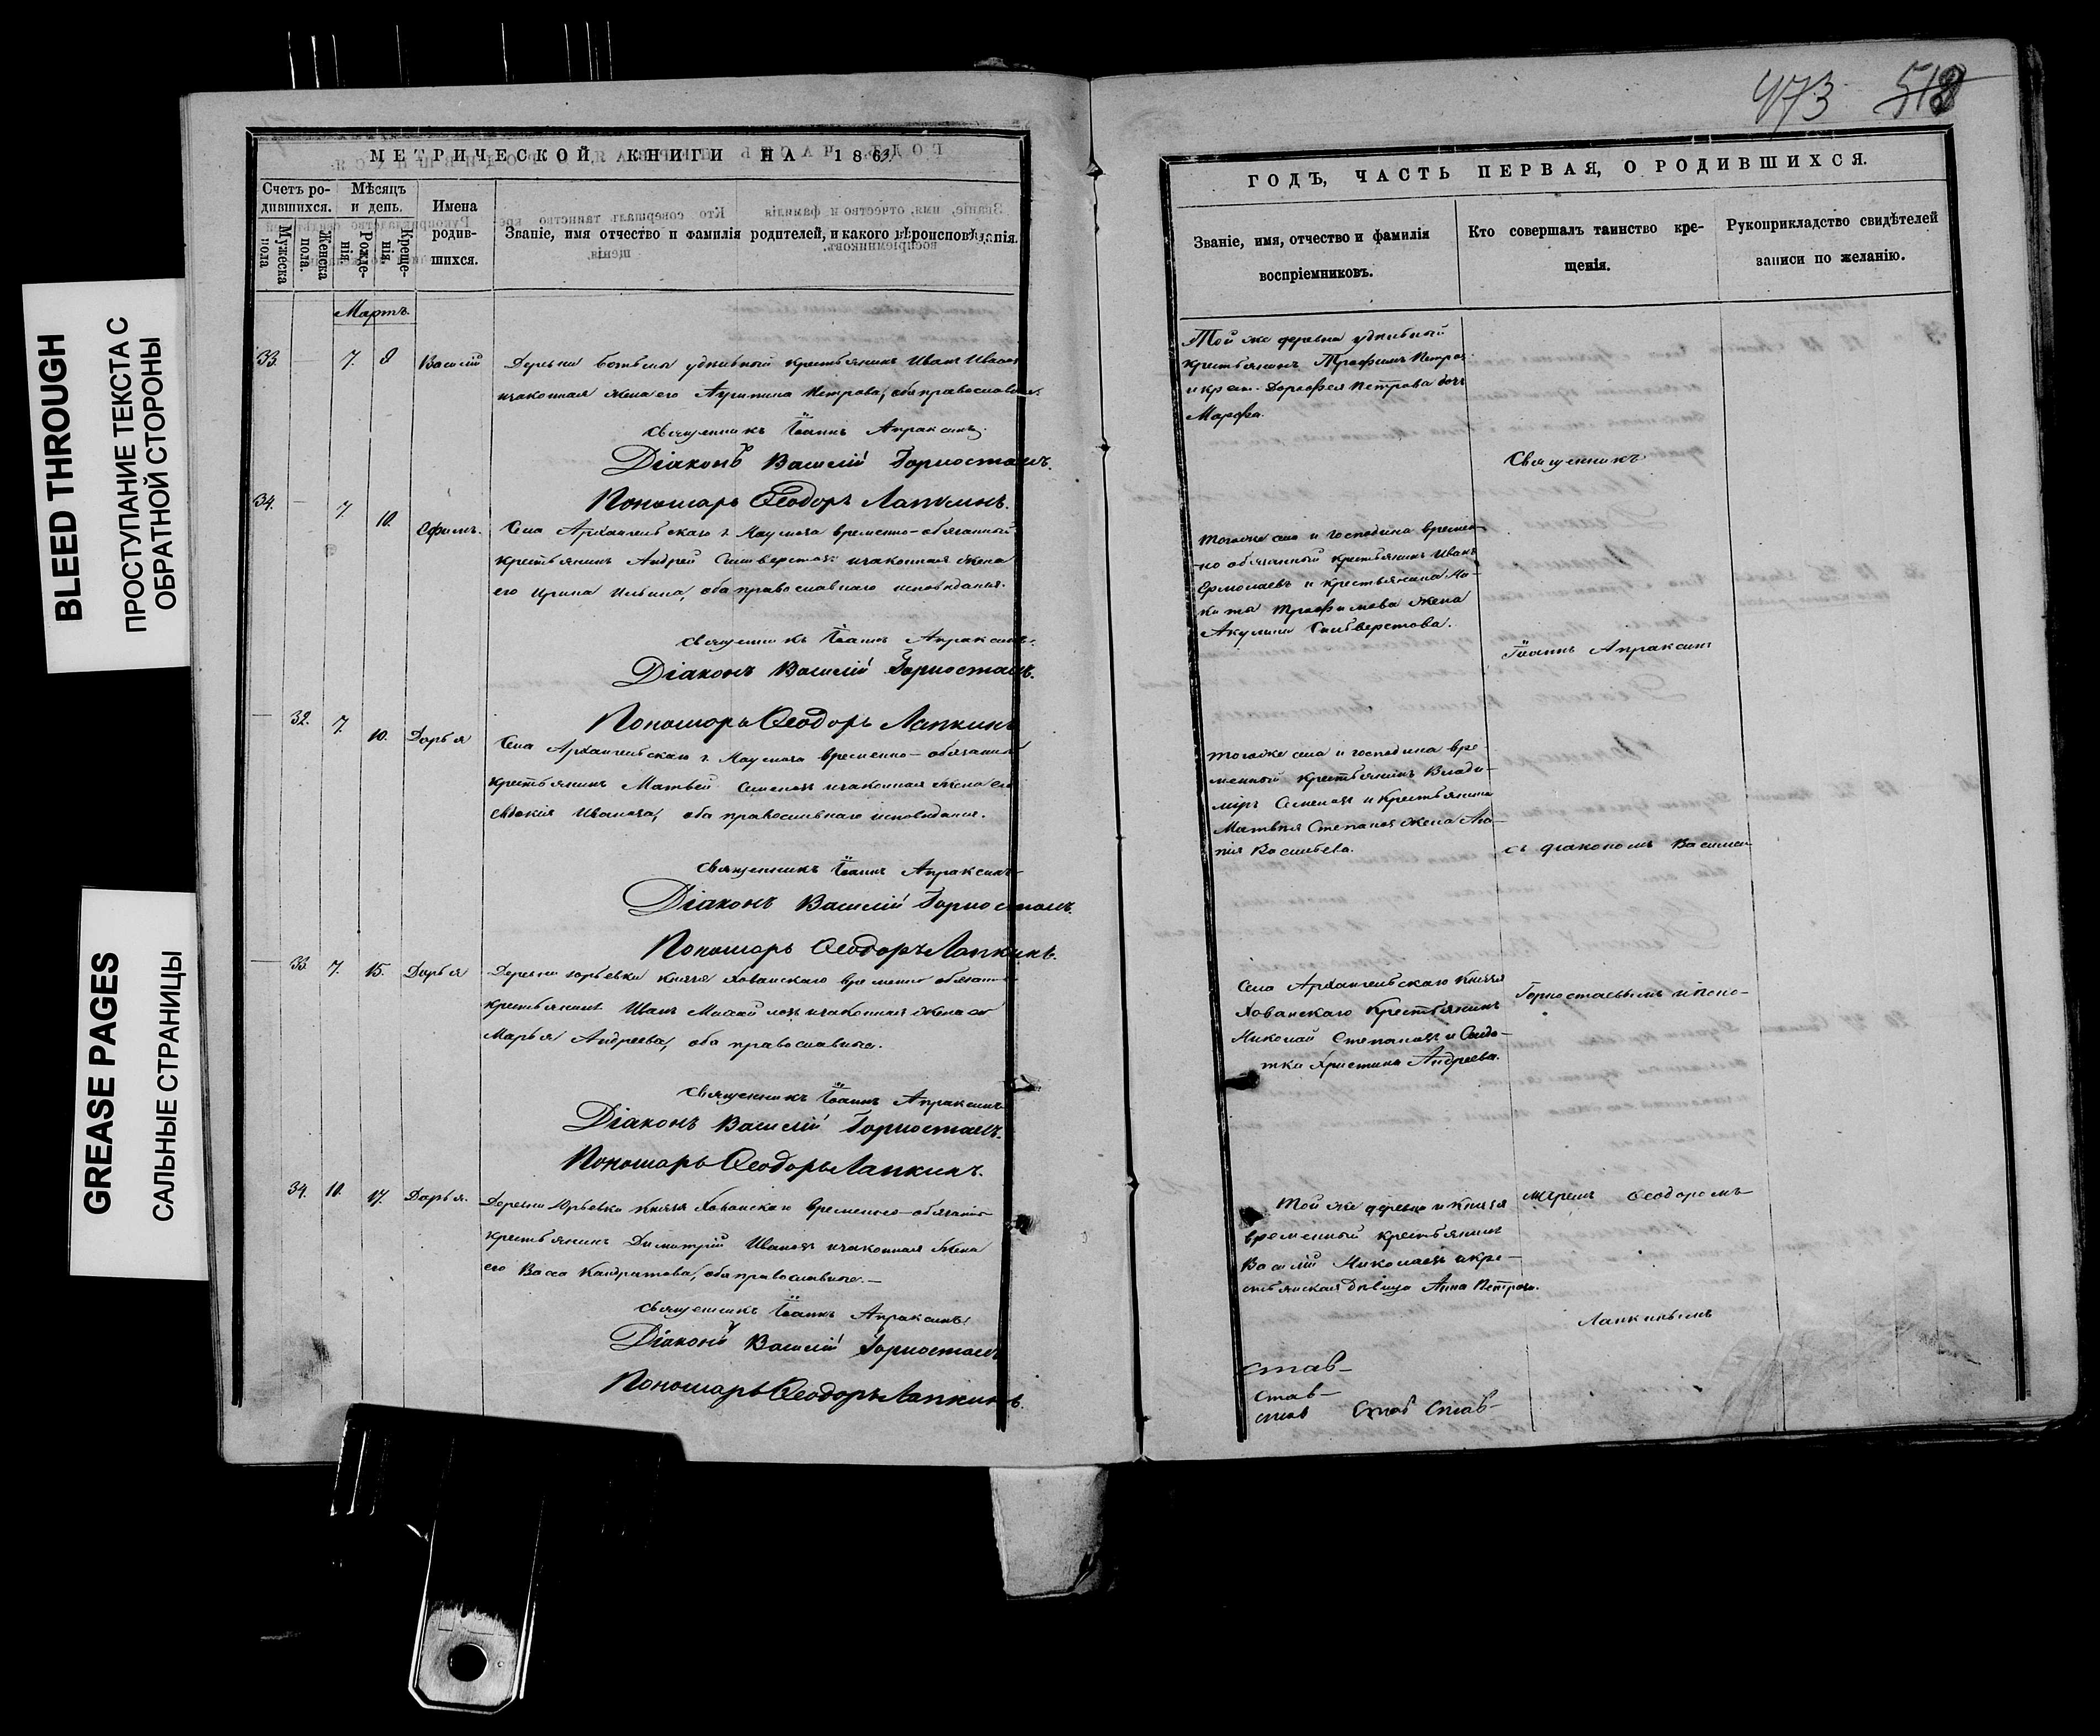 473 518
BLEED THROUGH
ПРОСТУПАНИЕ ТЕКСТА С
ОБРАТНОЙ СТОРОНЫ
GREASE PAGES
САЛЬНЫЕ СТРАНИЦЫ
МЕТРИЧЕСКОЙ КНИГИ НА 1863.
Счетъ ро-
дившихся.
Мужеска
пола
Женска
пола.
Мѣсяцъ
и день.
Рожде-
нія.
Креще-
нія.
Имена
родив-
шихся.
Званіе, имя отчество и фамилія родителей, и какого вѣроисповѣданія.
Мартъ.
33. 7. 8 Василій
крестьянинъ Иванъ
законная жена его Петрова, оба православные.
Священникъ Іоаннъ Апраксинъ.
Діаконъ Василій Горностаевъ.
Пономарь Ѳеодоръ Лапкинъ.
34. 7. 10. Ефимъ.
Села Архангельскаго г. временно-обязанный
крестьянинъ Андрей и законная жена
его Ирина Ильина, оба православнаго исповѣданія.
Священникъ Іоаннъ Апраксинъ.
Діаконъ Василій Горностаевъ.
Пономарь Ѳеодоръ Лапкинъ
32. 7. 10. Дарья
Села Архангельскаго г. временно-обязанный
крестьянинъ Матвей Семеновъ и законная жена его
Евдокія Иванова, оба православнаго исповѣданія.
Священникъ Іоаннъ Апраксинъ
Діаконъ Василій Горностаевъ.
Пономарь Ѳеодоръ Лапкинъ.
33. 7. 15. Дарья
Деревни Юрьевки Князя Хованскаго временно обязан
крестьянинъ Иванъ и законная жена его
Марья Андреева, оба православные.
Священникъ Іоаннъ Апраксинъ
Діаконъ Василій Горностаевъ.
Пономарь Ѳеодоръ Лапкинъ.
34. 10. 17. Дарья.
Деревни Юрьевки Князя Хованскаго временно-обязан
крестьянинъ Димитрій Ивановъ и законная жена
его Васса Кандратова, оба православные.—
Священникъ Іоаннъ Апраксинъ
Діаконъ Василій Горностаевъ
Пономарь Ѳеодоръ Лапкинъ.
ГОДЪ, ЧАСТЬ ПЕРВАЯ, О РОДИВШИХСЯ.
Званіе, имя, отчество и фамилія
воспріемниковъ.
Кто совершалъ таинство кре-
щенія.
Рукоприкладство свидѣтелей
записи по желанію.
Той же деревни удѣльный
крестьянинъ Трофимъ Петров
и крест. Дорофея Петрова дочь
Марфа.
Тогоже села и господина времен-
но обязанный крестьянинъ Иванъ
Ермолаевъ и крестьянина Ни-
киты Трофимова жена
Акулина Сильверстова.
Тогоже села и господина вре-
менной крестьянинъ Влади-
міръ Семеновъ и крестьянина
Матвѣя Степанова жена
Васильева.
Села Архангельскаго Князя
Хованскаго крестьянинъ
Николай Степановъ и Солда-
тка Христина Андреева.
Той же деревни и Князя
временный крестьянинъ
Василій Николаевъ и кре-
стьянская дѣвица Анна Петрова.
Священникъ
Іоаннъ Апраксинъ
съ діакономъ Василіем
Горностаевымъ и поно-
маремъ Ѳеодоромъ
Лапкинымъ
став-
став-
став став став-